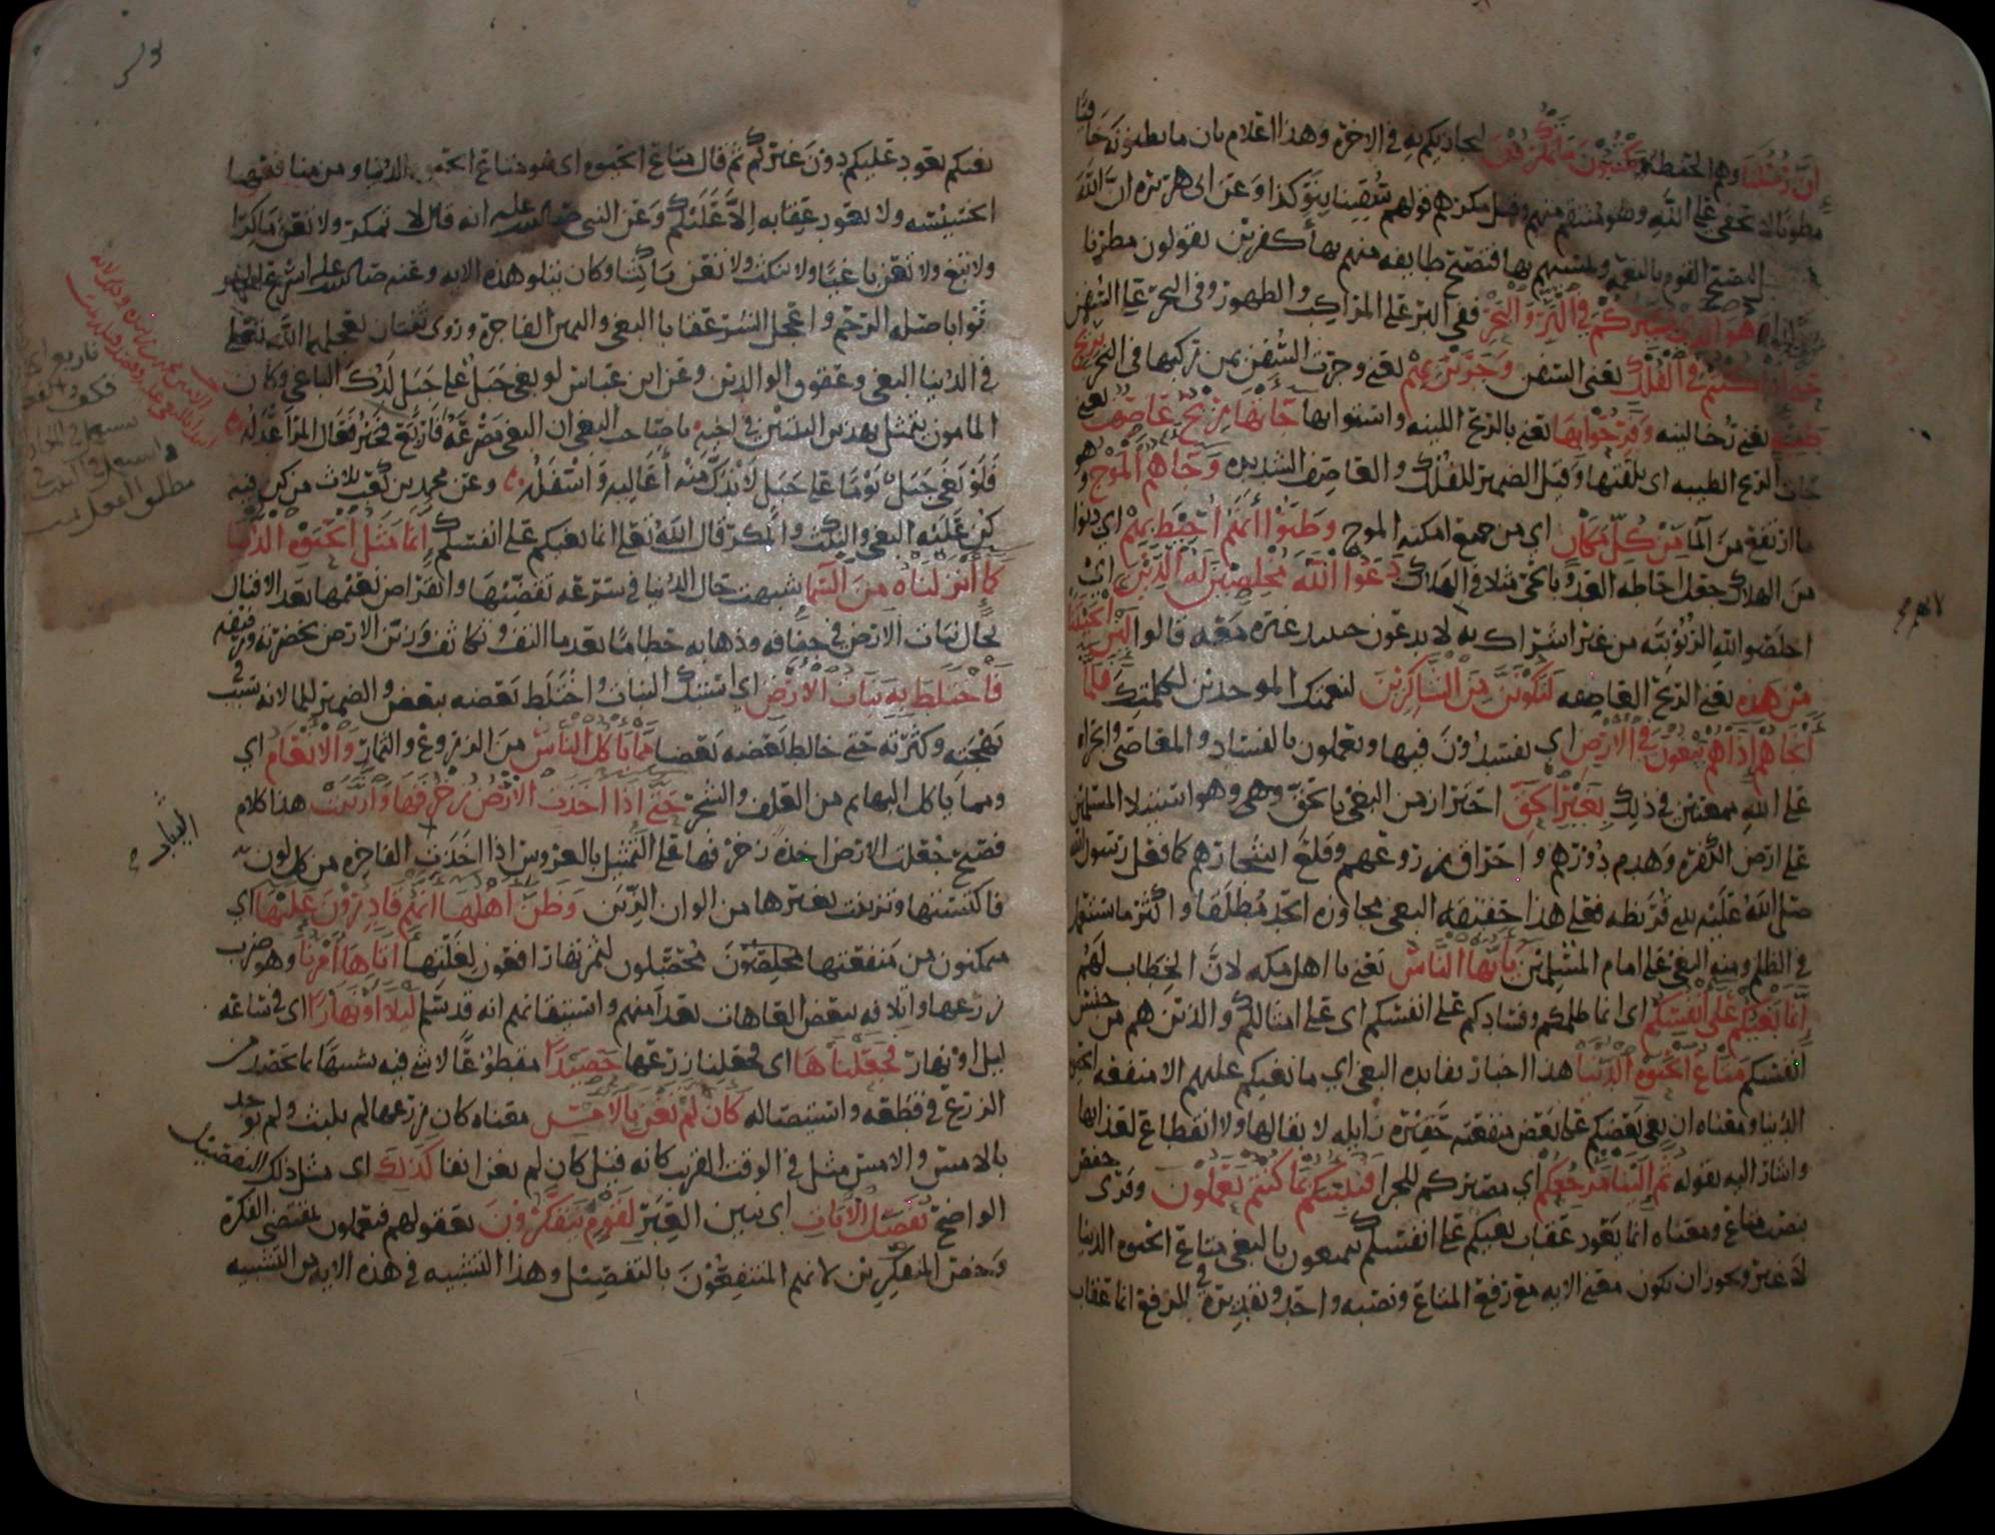 إن رسلنا وهم الحفظة يكتبون ما تمكرون ليجازيكم به في الاخرة وهذا اعلام بان ما يظنونه خافيا
مطويا لا يخفى على الله وهو منتقم منهم وقيل مكرهم قولهم سقينا بنو كذا وعن ابي هريرة ان الله
ليصبح القوم بالنعمة ويمسيهم بها فتصبح طايفه منهم بها كفرين يقولون مطرنا
هو الذي يسيركم في البر والبحر ففي البر على المراكب والظهور وفي البحر على السفن
حتى اذا كنتم في الفلك يعني السفن وجرين بهم يعني وجرت السفن بمن ركبها في البحر بريح
طيبة يعني رخا لينه وفرحوا بها يعني بالريح اللينه واستووا بها جاتها ريح عاصف يعني
جات الريح الطيبه اي تلقتها وقيل الضمير للفلك والعاصف الشديده وجاهم الموج وهو
ما ارتفع من الما من كل مكان اي من جميع امكنه الموج وظنوا انهم احيط بهم اي دنوا
من الهلاك جعل احاطه العدو بالحي مثلا في الهلاك دعوا الله مخلصين له الدين اي
اخلصوا لله الربوبيه من غير اشراك به لا يدعون حينيذ غيره معه قالوا لين انجيتنا
من هذه يعني الريح العاصفه لنكونن من الشاكرين لنعمتك الموحدين لكلمتك فلما
انجاهم اذا هم يبغون في الارض اي يفسدون فيها ويعملون بالفساد والمعاصي والجراه
على الله ممعنين في ذلك بغير الحق احتراز من البغي بالحق وهي وهو استيلا المسلمين
على ارض الكفره وهدم دورهم واحراق زروعهم وقلع اشجارهم كما فعل رسول الله
صلى الله عليه ببني قريظه فعلى هذا حقيقه البغي مجاوزه الحد مطلقا واكثر ما يستعمل
في الظلم ومنه البغي على امام المسلمين يا ايها الناس يعني يا اهل مكه لان الخطاب لهم
انما بغيكم على انفسكم اي انما ظلمكم وفسادكم على انفسكم اي على امثالكم والذين هم من جنس
انفسكم متاع الحيوة الدنيا هذا اخبار بفايده البغي اي ما بغيكم عليهم الا منفعه الحيوه
الدنيا ومعناه ان بغي بعضكم على بعض منفعه حقيره زايله لا بقا لها ولا انقطاع لعذابها
واشار اليه بقوله ثم الينا مرجعكم اي مصيركم للجزا فننبئكم بما كنتم تعملون وقرى حفص
بنصب متاع ومعناه انما يعود عقاب بغيكم على انفسكم يتمتعون بالبغي متاع الحيوه الدنيا
لا غير ويجوز ان يكون معنى الايه مع رفع المتاع ونصبه واحد وتقديره في الرفع انما عقاب
بغيكم يعود عليكم دون غيركم ثم قال متاع الحيوه اي هو متاع الحيوة الدنيا ومن منافعها
الخسيسه ولا يعود عقابه الا عليكم وعن النبي صلى الله عليه انه قال لا تمكر ولا تعن ماكرا
ولا تبغ ولا تعن باغيا ولا تنكث ولا تعن ناكثا وكان يتلو هذه الايه وعنه صلى الله عليه اسرع الخير
ثوابا صلة الرحم واعجل الشر عقابا البغي واليمين الفاجرة وروى ثنتان يعجلهما الله تعلى
في الدنيا البغي وعقوق الوالدين وعن ابن عباس لو بغى جبل على جبل لدك الباغي وكان
المامون يتمثل بهذين البيتين في اخيه يا صاحب البغي ان البغي مصرعة فاربع فخير فعال المرء اعدله
فلو بغى جبل يوما على جبل لاندك منه اعاليه واسفله وعن محمد بن كعب ثلاث من كن فيه
كن عليه البغي والنكث والمكر قال الله تعلى انما بغيكم على انفسكم انما مثل الحيوة الدنيا
كما انزلناه من السما شبهت حال الدنيا في سرعة تقضيها وانقراض نعيمها بعد الاقبال
بحال نبات الارض في جفافه وذهابه حطاما بعد ما التف وتكاثف وزين الارض بخضرته ورفيفه
فاختلط به نبات الارض اي اشتبك النبات واختلط بعضه ببعض والضمير للما لانه سبب في
بهجته وكثرته حتى خالط بعضه بعضا مما ياكل الناس من الزروع والثمار والانعام اي
ومما ياكل البهايم من العلف والشجر حتى اذا اخذت الارض زخرفها وازينت هذا كلام
فصيح جعلت الارض اخذه زخرفها على التمثيل بالعروس اذا اخذت الفاخره من كل لون
فاكتستها وتزينت بغيرها من الوان الزين وظن اهلها انهم قادرون عليها اي
متمكنون من منفعتها محصلون لثمرتها رافعون لغلتها اتاها امرنا وهو ضرب
زرعها واتلافه ببعض العاهات بعد امنهم واستيقانهم انه قد سلم ليلا او نهارا اي في ساعه
ليل او نهار فجعلناها اي فجعلنا زرعها حصيدا مقطوعا لا شي فيه شبيها بما يحصد من
الزرع في قطعه واستيصاله كان لم تغن بالامس معناه كان زرعها لم يلبث ولم يوجد
بالامس والامس مثل في الوقت القريب كانه قيل كان لم يغن انفا كذلك اي مثل ذلك التفصيل
الواضح نفصل الايات اي نبين العبر لقوم يتفكرون يعقولهم فيعملون بمقتضى الفكرة
وخص المتفكرين لانهم المنتفعون بالتفصيل وهذا التشبيه في هذه الايه من التشبيه